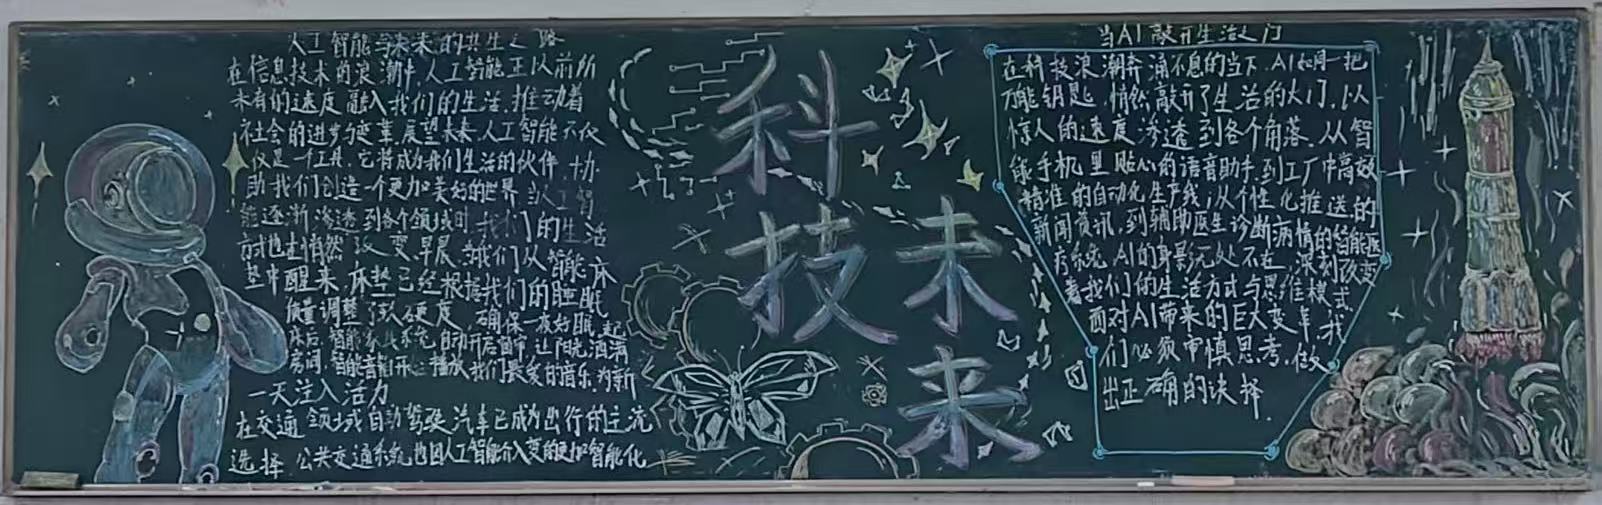 人工智能与未来的共生之路
在信息技术的浪潮中,人工智能正以前所
未有的速度融入我们的生活,推动着
社会的进步与变革,展望未来,人工智能不仅
仅是一个工具,它将成为我们生活的伙伴,协
助我们创造一个更加美好的世界,当人工智
能逐渐渗透到各个领域时,我们的生活
方式也在悄然改变,早晨,当我们从智能床
垫中醒来,床垫已经根据我们的睡眠
质量调整了软硬度,确保一夜好眠,起
床后,智能家居系统自动开启窗帘,让阳光洒满
房间,智能音箱开始播放我们最爱的音乐,为新
一天注入活力
在交通领域自动驾驶汽车已成为出行的主流
选择.公共交通系统也因人工智能介入变的更加智能化
科技
未来
当AI敲开生活之门
在科技浪潮奔涌不息的当下,AI如同一把
万能钥匙,悄然敲开了生活的大门,以
惊人的速度渗透到各个角落.从智
能手机里贴心的语音助手,到工厂中高效
精准的自动化生产线;从个性化推送的
新闻资讯,到辅助医生诊断病情的智能医
疗系统,AI的身影无处不在,深刻改变
着我们的生活方式与思维模式.
面对AI带来的巨大变革,我
们必须审慎思考,做
出正确的诀择.